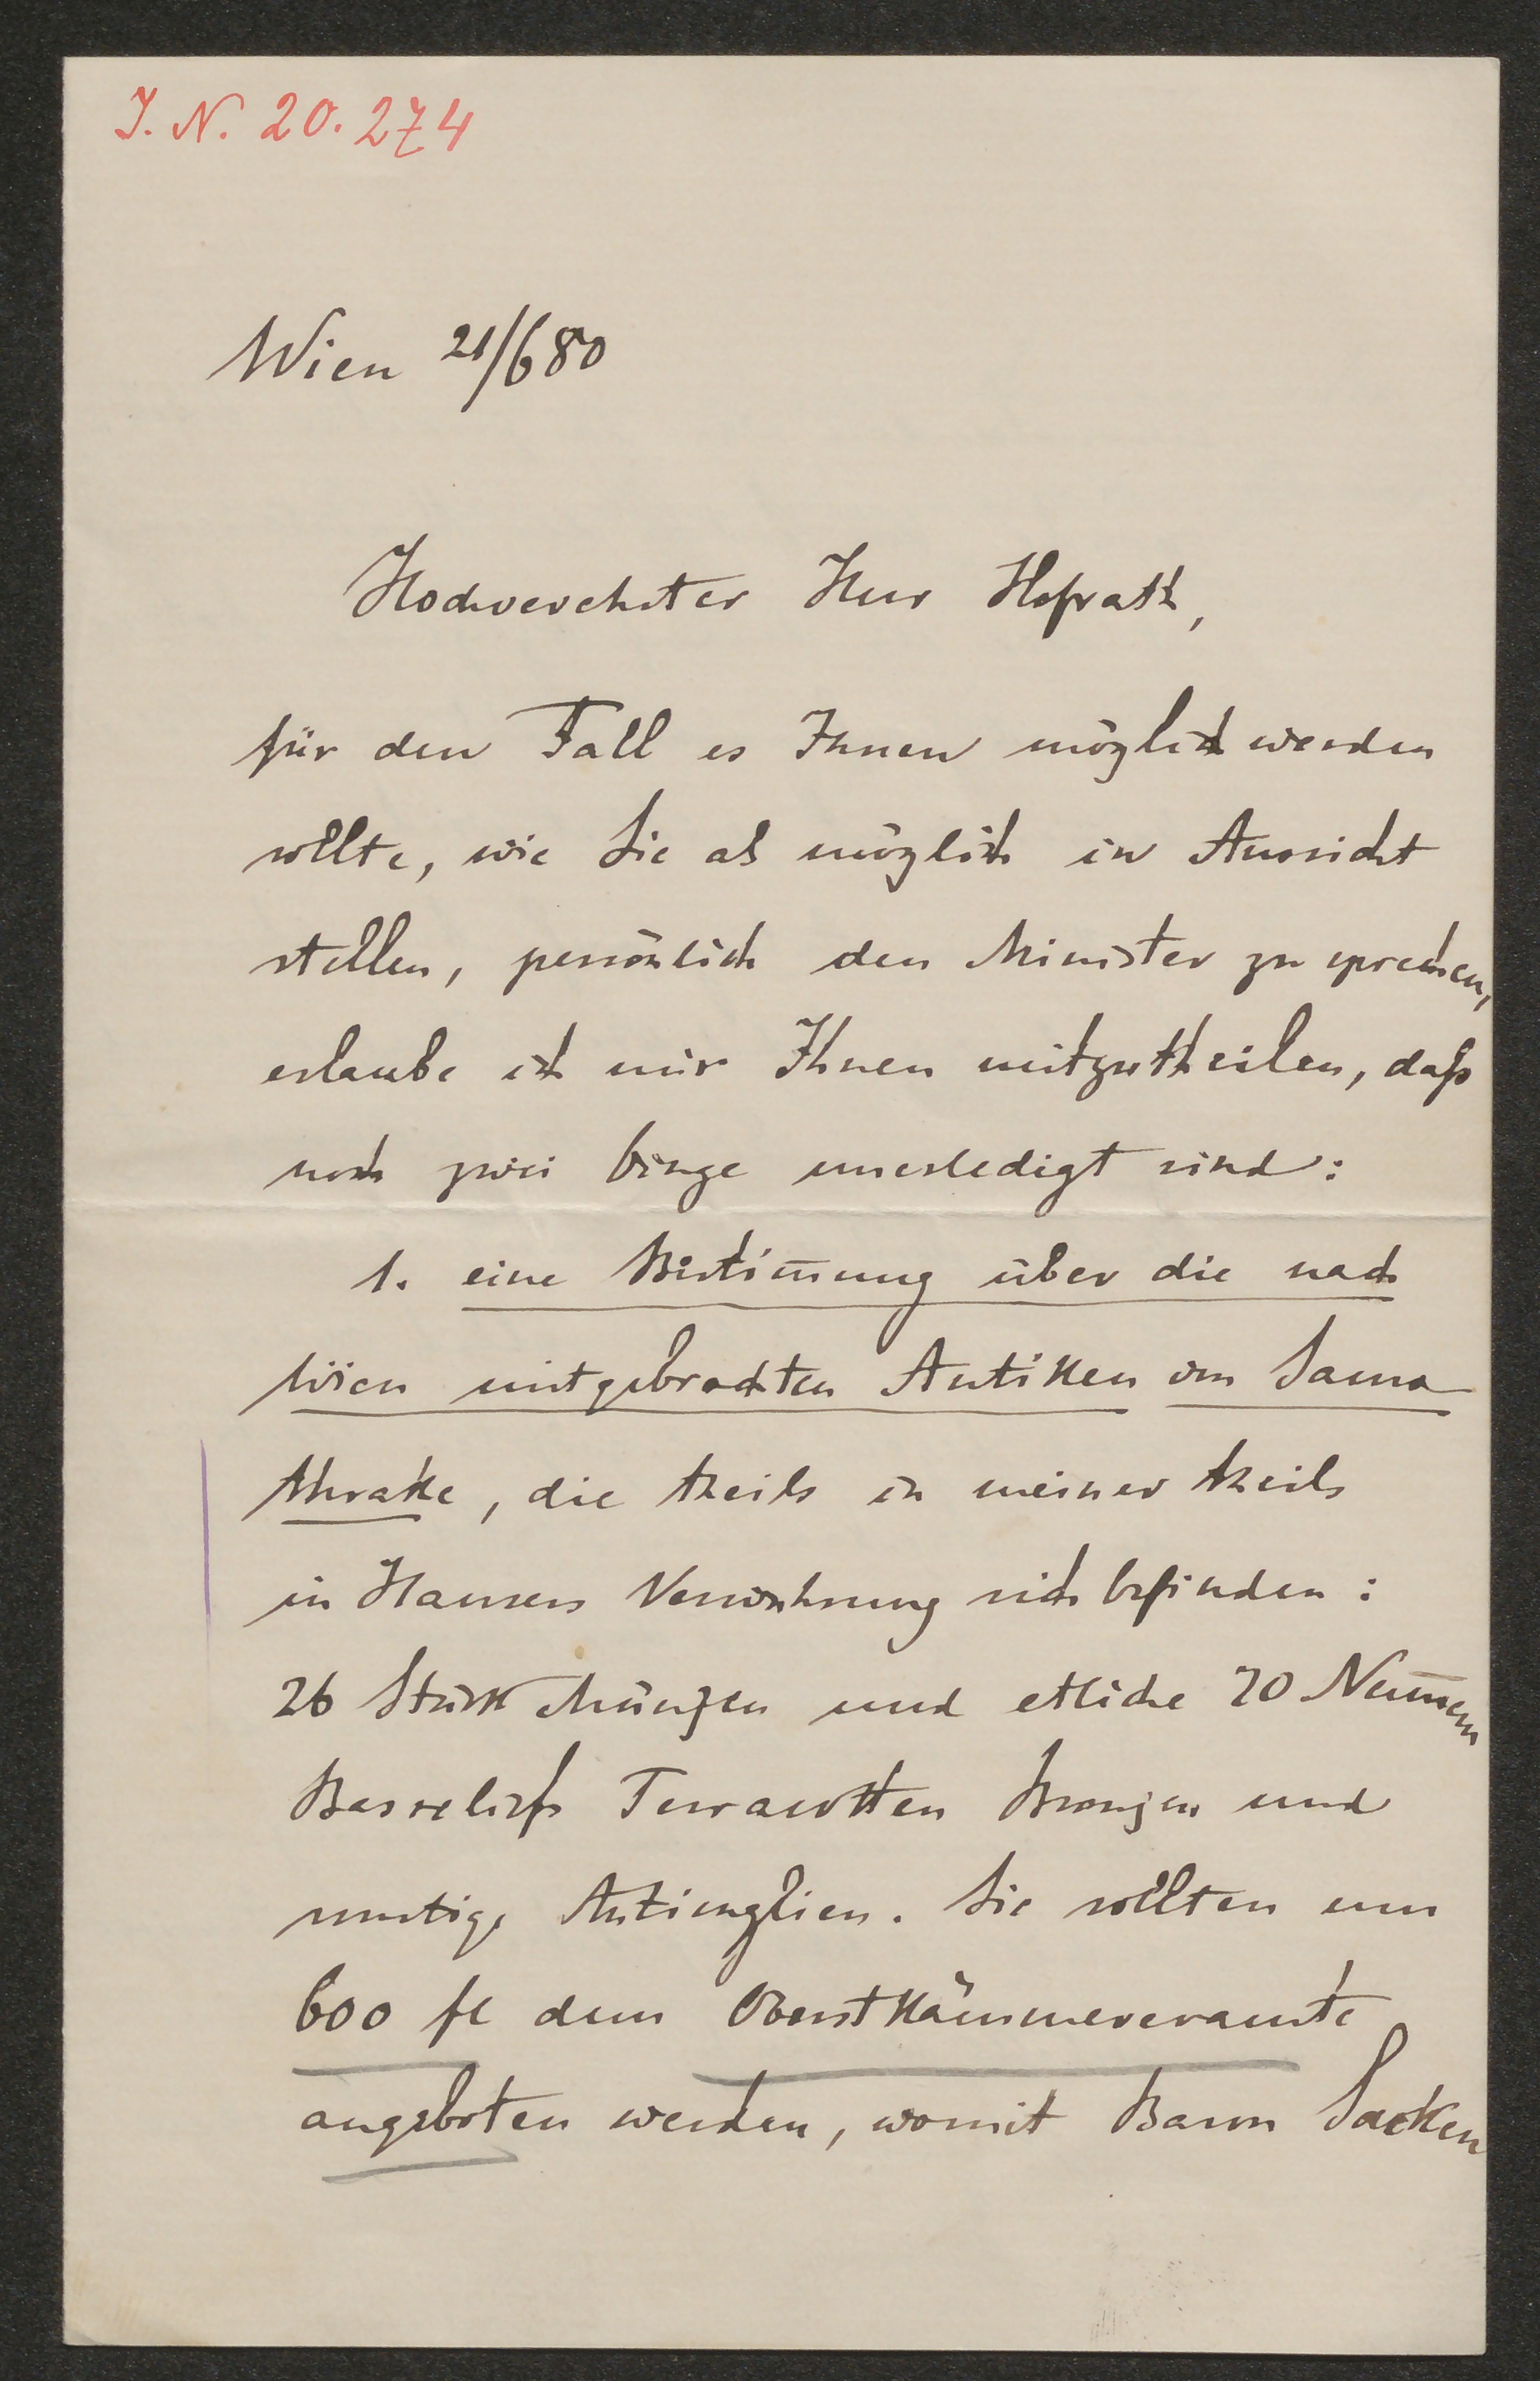 I. N. 20.274
Wien 21/6 80
Hochverehrter Herr Hofrath,
für den Fall es Ihnen möglich werden
sollte, wie Sie als möglich in Aussicht
stellen, persönlich den Minister zu sprechen,
erlaube ich mir Ihnen mitzutheilen, daß
noch zwei Dinge unerledigt sind:
1. eine Bestim̅ung über die nach
Wien mitgebrachten Antiken von Samo
thrake, die theils in meiner theils
in Hausers Verwahrung sich befinden:
26 Stück Münzen und etliche 70 Num̅ern
Basreliefs Terracotten Bronzen und
sonstige Anticaglien. Sie sollten um
600 fl dem Oberstkämmereramte
angeboten werden, womit Baron Sacken